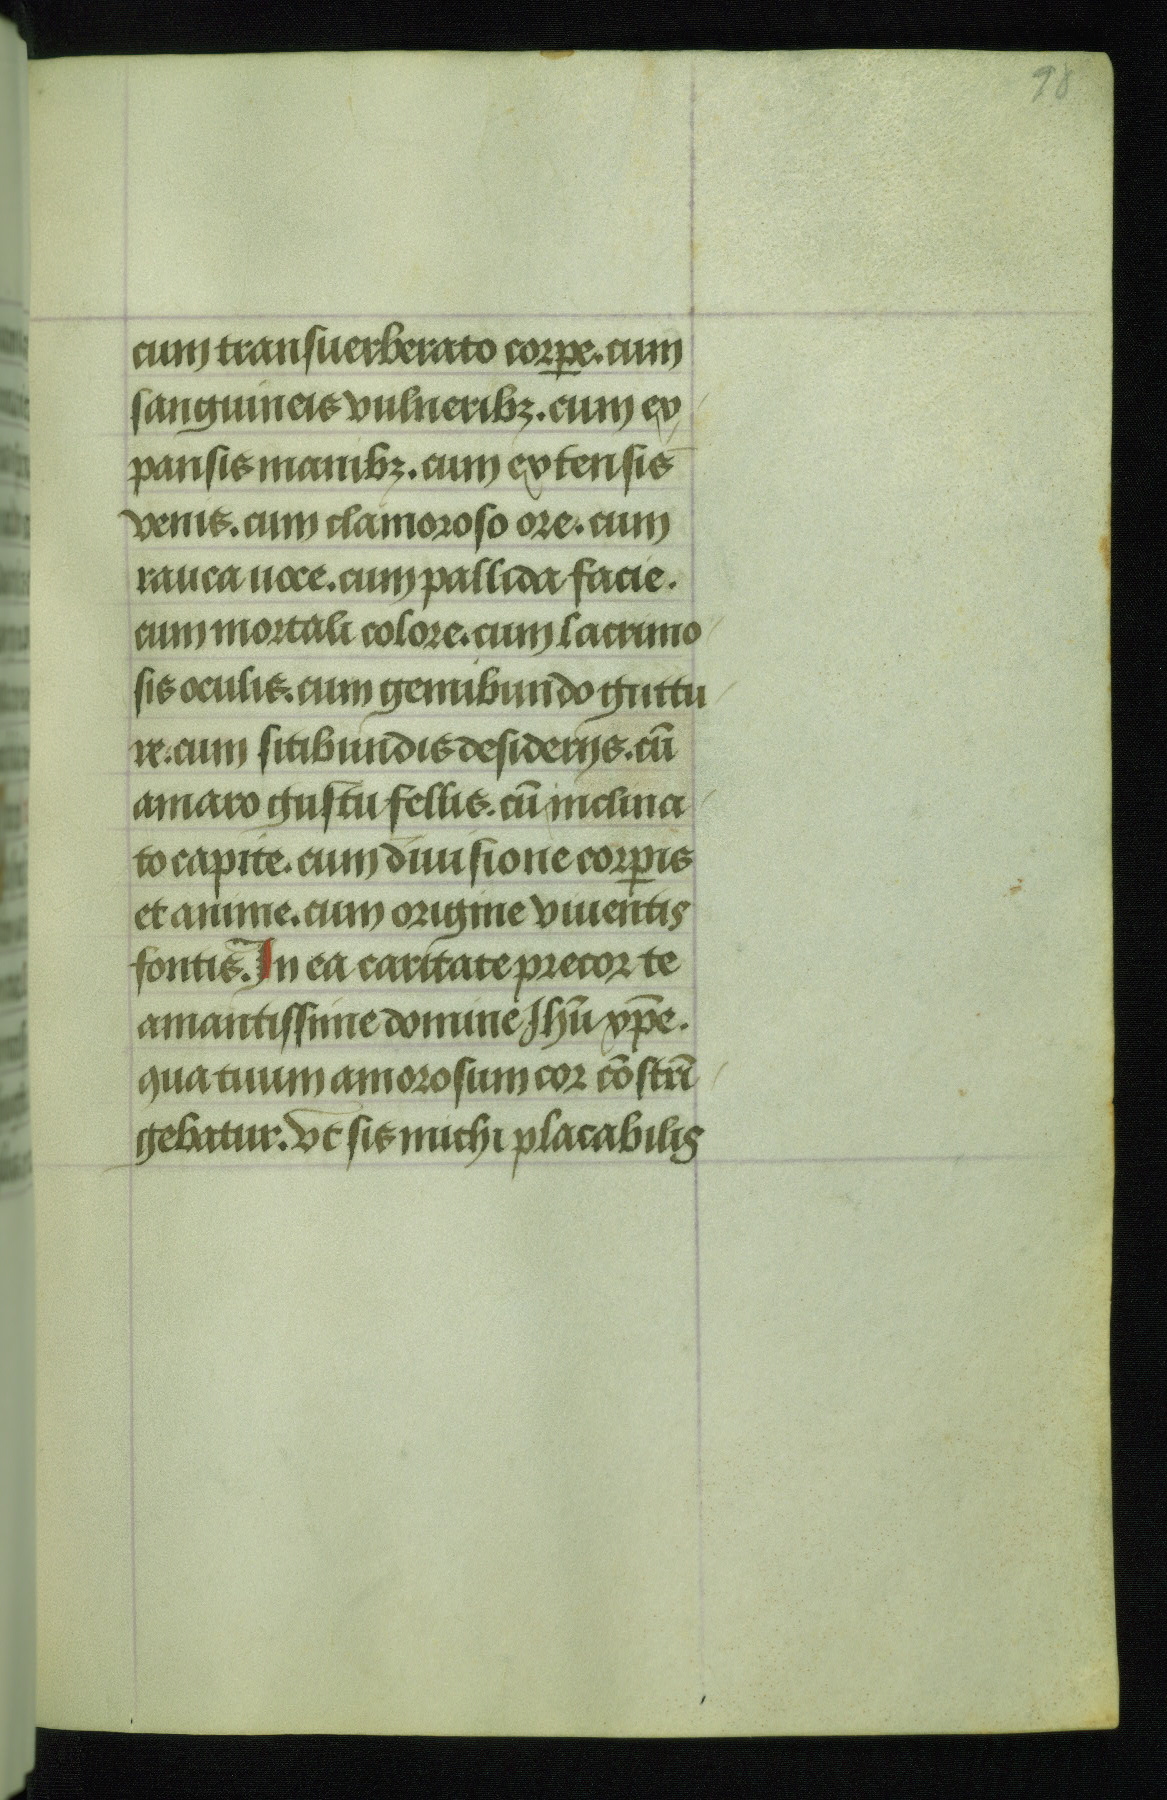 98
cum transuerberato corꝑe. cum
sanguineis vulneribꝫ. cum ex
pansis manibꝫ. cum extensis
venis. cum clamoroso ore. cum
rauca uoce. cum pallida facie.
cum mortali colore. cum lacrimo
sis oculis. cum gemibundo guttu
re. cum sitibundis desiderijs. cū
amaro gustu fellis. cū inclina
to capite. cum diuisione corꝑis
et anime. cum origine viuentis
fontis. In ea caritate precor te
amantissime domine Jhū xp̄e.
qua tuum amorosum cor cōstrī
gebatur. vt sis michi placabilis